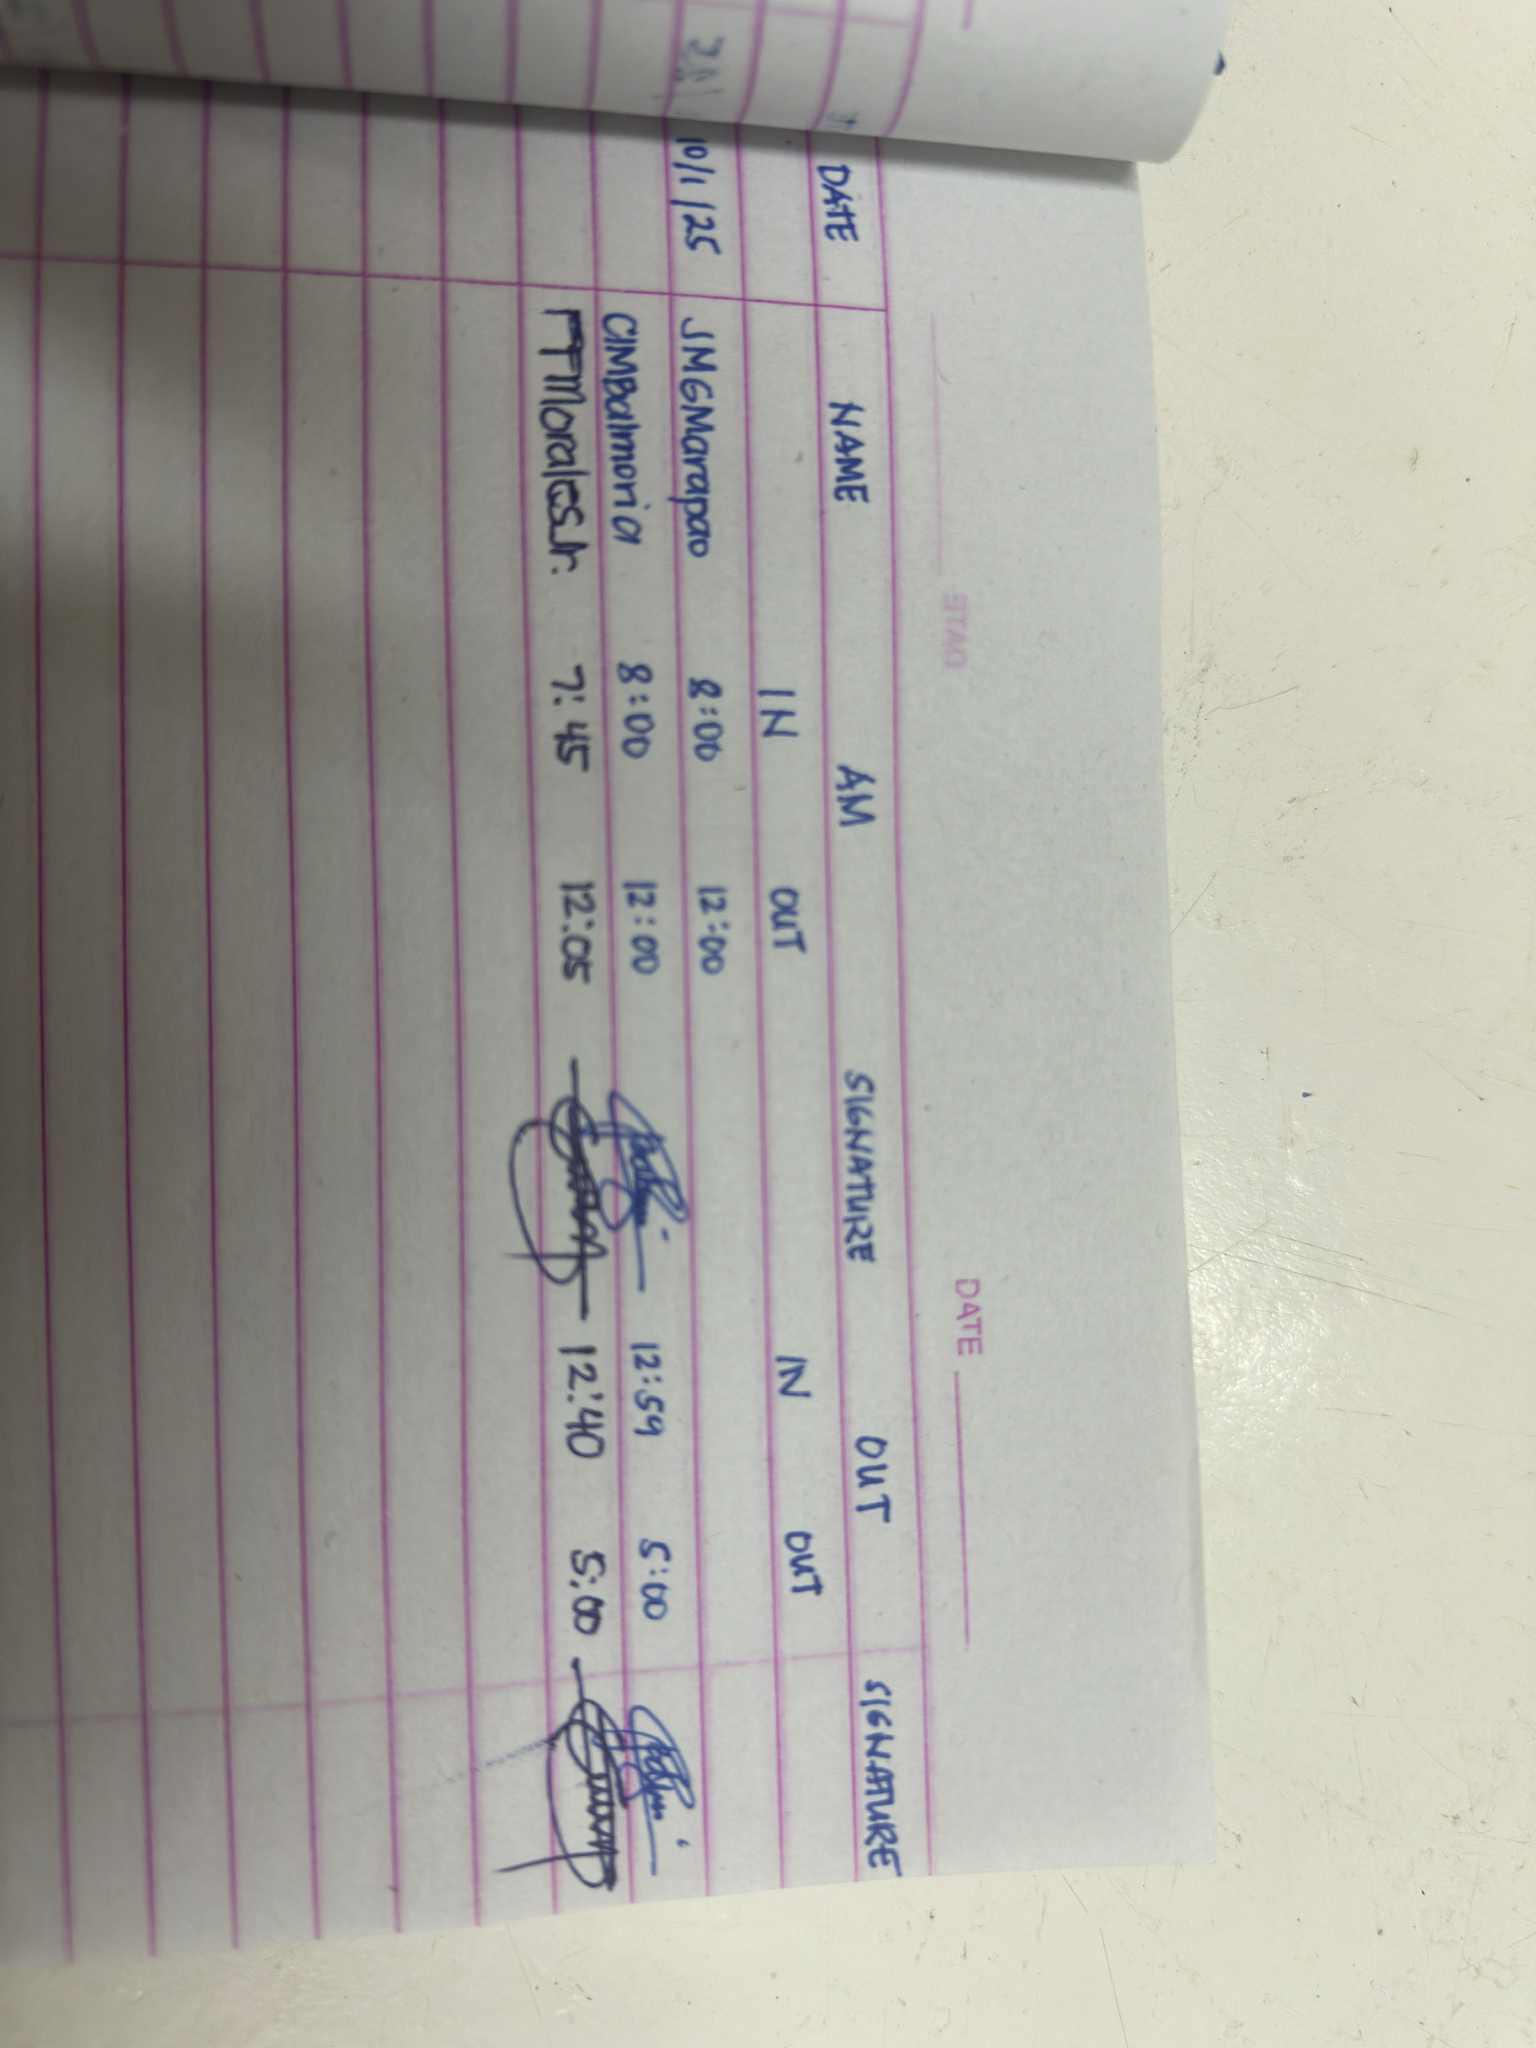 DATE
DATE NAME AM SIGNATURE OUT SIGNATURE
IN OUT IN OUT
10/1/25 JMGMarapao 8:00 12:00
CIMBalmoria 8:00 12:00 12:59 5:00
FTMorales Jr. 7:45 12:05 12:40 5:00